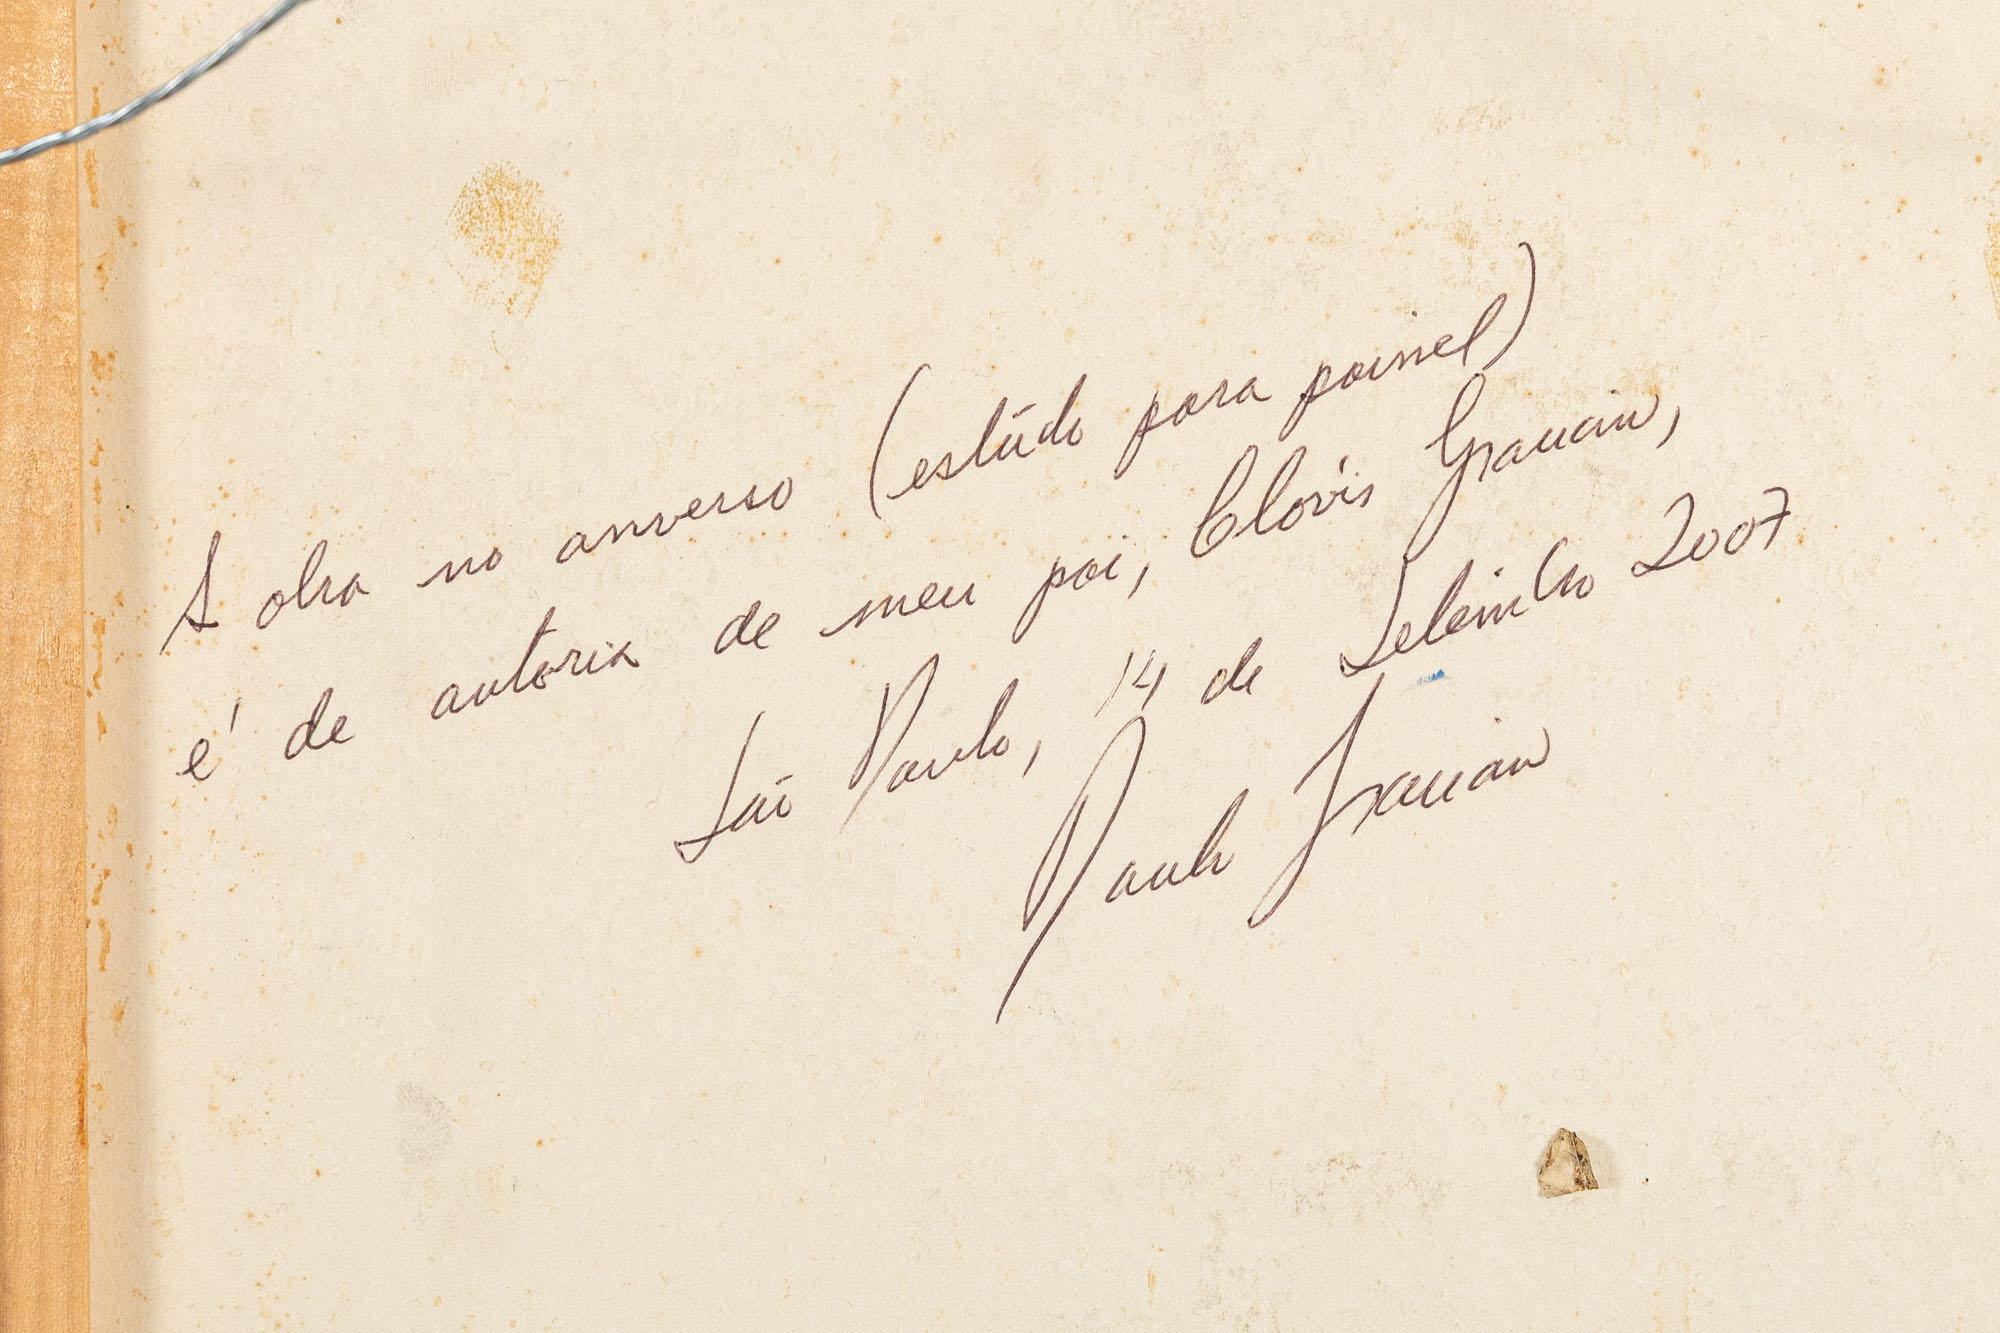 A obra no anverso (estúdo para painel)
é de autoria de meu pai, Clóvis Graciano,
São Paulo, 14 de Setembro 2007
Paulo Graciano